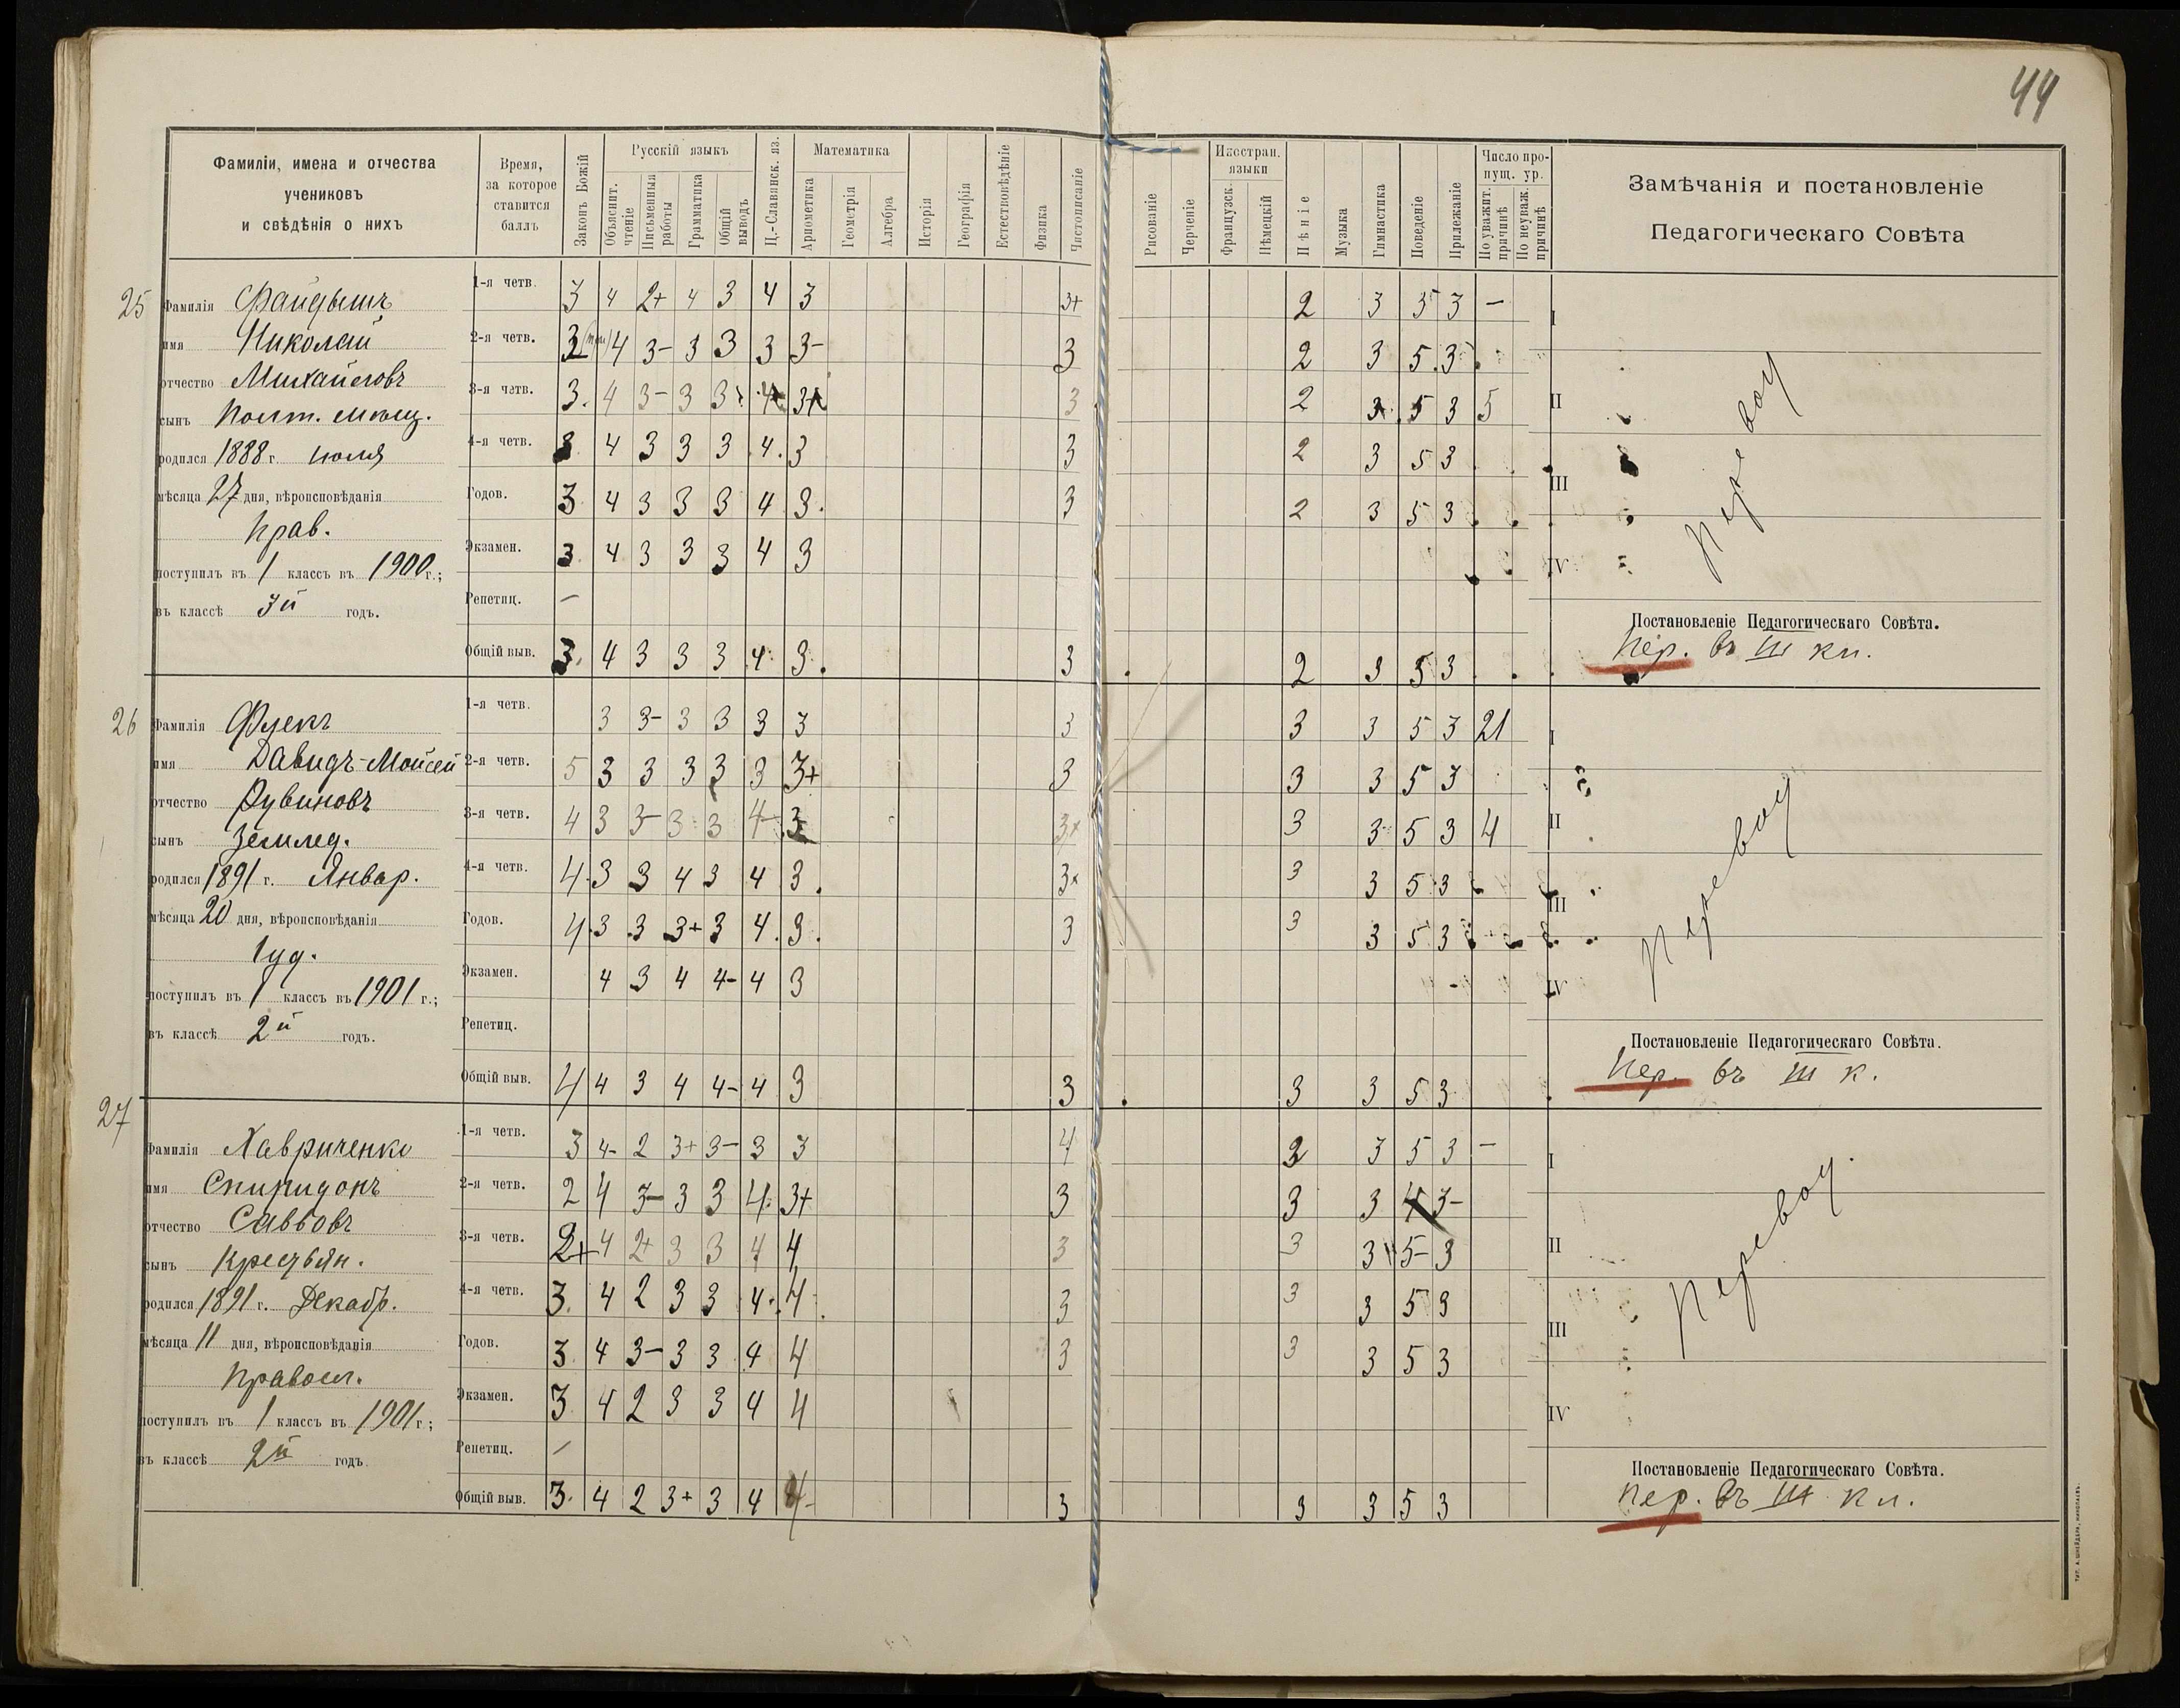 44
Фамиліи, имена и отчества
учениковъ
и свѣдѣнія о нихъ
Время,
за которое
ставится
баллъ
Законъ Божій
Русскій языкъ
Объяснит. чтеніе
Письменныя работы
Грамматика
Общій выводъ
Ц.-Славянск. яз.
Математика
Ариѳметика
Геометрія
Алгебра
Исторія
Географія
Естествовѣдѣніе
Физика
Чистописаніе
Рисованіе
Черченіе
Иностран. языки
Французск.
Нѣмецкій
Пѣніе
Музыка
Гимнастика
Поведеніе
Прилежаніе
Число пропущ. ур.
По уважит. причинѣ
По неуваж. причинѣ
Замѣчанія и постановленіе
Педагогическаго Совѣта
25
Фамилія Файдышъ
имя Николай
отчество Михайловъ
сынъ мѣщ.
родился 1888 г. июля
мѣсяца 27 дня, вѣроисповѣданія
прав.
поступилъ въ 1 классъ въ 1900 г.;
въ классѣ 3й годъ.
1-я четв. 3 4 2+ 4 3 4 3 3+ 2 3 5 3 —
2-я четв. 3 4 3- 3 3 3 3- 3 2 3 5 3
3-я четв. 3 4 3- 3 3 4 3+ 3 2 3 5 3 5
4-я четв. 3 4 3 3 3 4 3 3 2 3 5 3
Годов. 3 4 3 3 3 4 3 3 2 3 5 3
Экзамен. 3 4 3 3 3 4 3
Репетиц. —
Общій выв. 3 4 3 3 3 4 3 3 2 3 5 3
I
II
III
IV
Переводъ
Постановленіе Педагогическаго Совѣта.
Пер. въ III кл.
26
Фамилія Флекъ
имя Давидъ-Мойсей
отчество Рувиновъ
сынъ землед.
родился 1891 г. Январ.
мѣсяца 20 дня, вѣроисповѣданія
Iуд.
поступилъ въ 1 классъ въ 1901 г.;
въ классѣ 2й годъ.
1-я четв. 3 3- 3 3 3 3 3 3 3 5 3 21
2-я четв. 5 3 3 3 3 3 3+ 3 3 3 5 3
3-я четв. 4 3 3- 3 3 4- 3 3+ 3 3 5 3 4
4-я четв. 4 3 3 4 3 4 3 3+ 3 3 5 3
Годов. 4 3 3 3+ 3 4 3 3 3 3 5 3
Экзамен. 4 3 4 4- 4 3
Репетиц.
Общій выв. 4 4 3 4 4- 4 3 3 3 3 5 3
I
II
III
IV
Переводъ
Постановленіе Педагогическаго Совѣта.
Пер. въ III к.
27
Фамилія Хавриченко
имя Спиридонъ
отчество Саввовъ
сынъ крестьян.
родился 1891 г. Декабр.
мѣсяца 11 дня, вѣроисповѣданія
правосл.
поступилъ въ 1 классъ въ 1901 г.;
въ классѣ 2й годъ
1-я четв. 3 4- 2 3+ 3- 3 3 4 3 5 3 —
2-я четв. 2 4 3- 3 3 4 3+ 3 3 3 4 3-
3-я четв. 2+ 4 2+ 3 3 4 4 3 3 3 5- 3
4-я четв. 3 4 2 3 3 4 4 3 3 3 5 3
Годов. 3 4 3- 3 3 4 4 3 3 3 5 3
Экзамен. 3 4 2 3 3 4 4
Репетиц. —
Общій выв. 3 4 2 3+ 3 4 4- 3 3 3 5 3
I
II
III
IV
Переводъ
Постановленіе Педагогическаго Совѣта.
Пер. въ III кл.